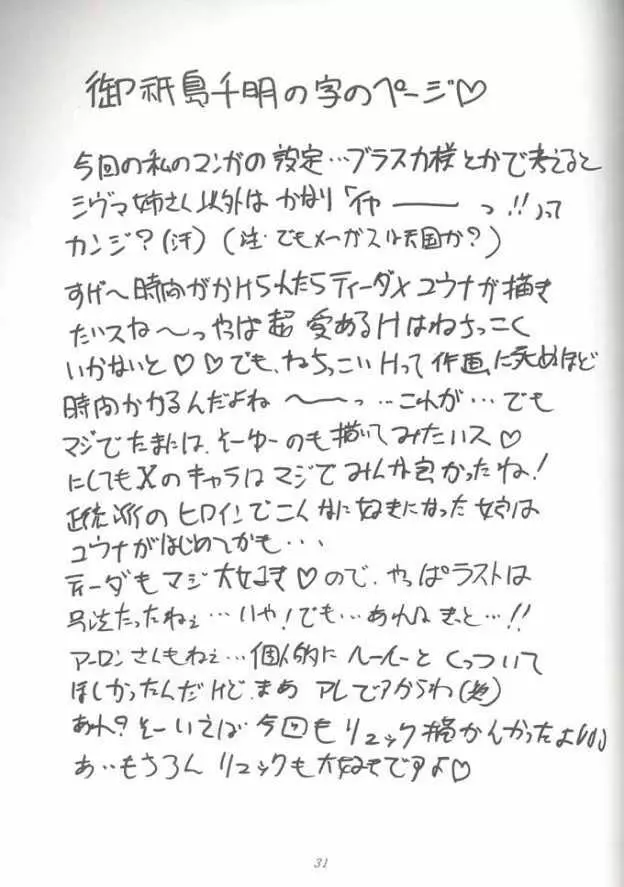 御祇島千明の字のページ♡
今回の私のマンガの設定…ブラスカ様とかで考えると
シヴァ姉さん以外はかなり「イヤーーっ!!」って
カンジ?(汗)(注・でもメーガスは天国か?)
すげ〜時間がかけられたらティーダ×ユウナが描き
たいスね〜っやっぱ超愛あるHはねちっこく
いかないと♡♡でも、ねちっこいHって作画に死ぬほど
時間かかるんだよね〜ーっ…これが…でも
マジでたまには、そーゆーのも描いてみたいス♡
にしてもXのキャラはマジでみんな良かったね!
正統派のヒロインでこんなに好きになった娘は
ユウナがはじめてかも・・・
ティーダもマジ大好き♡ので、やっぱラストは
号泣だったねぇ…いや!でも…あれはきっと…!!
アーロンさんもねぇ…個人的にルールーとくっついて
ほしかったんだけど、まあアレですからね
あれ?そーいえば今回もリュック描かんかったよ
あ…もちろんリュックも大好きですよ♡
31